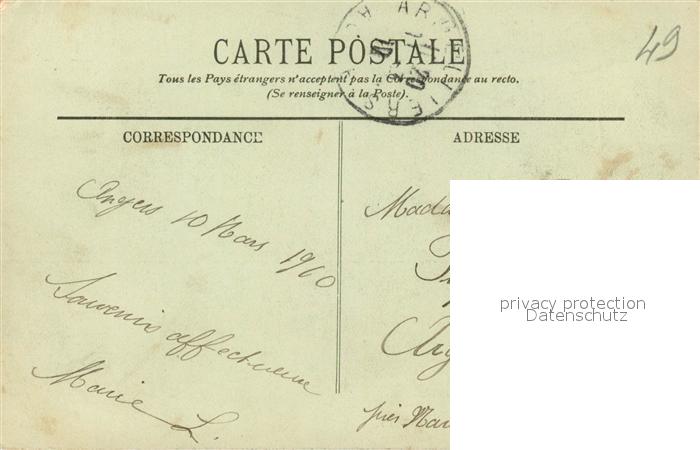 49
CARTE POSTALE
Tous les Pays étrangers n'acceptent pas la Correspondance au recto.
(Se renseigner à la Poste).
CORRESPONDANCE
ADRESSE
Angers 10 Mars 1910
Souvenir affectueux
Marie L.
Mada
près
privacy protection
Datenschutz